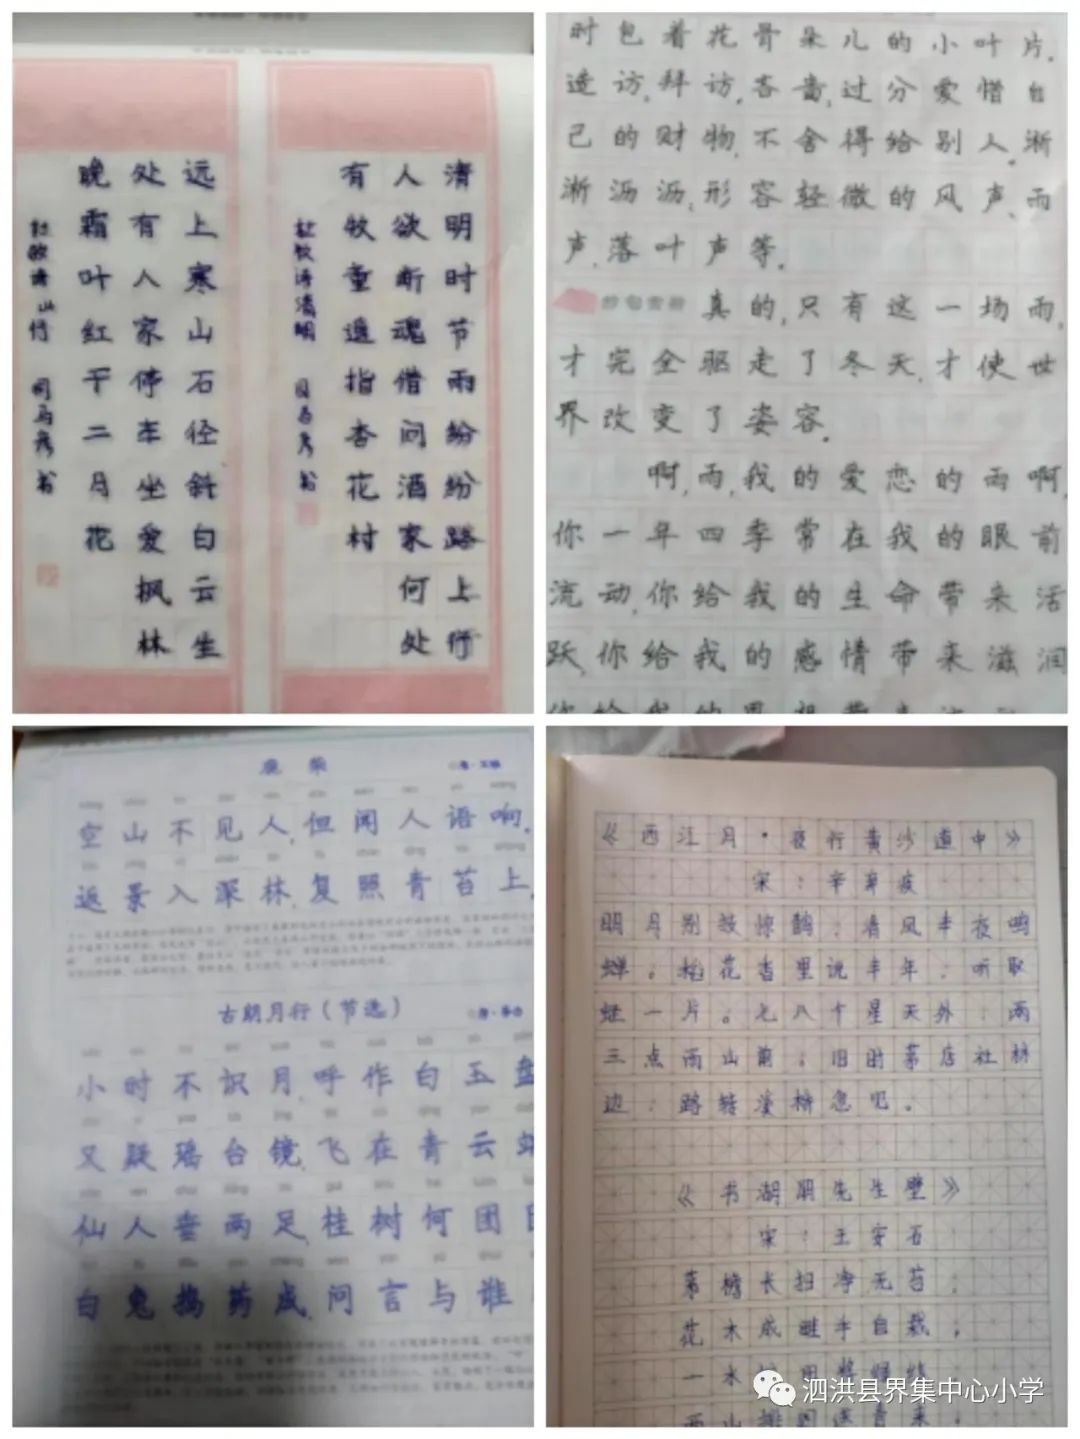 清明时节雨纷纷路上行
人欲断魂借问酒家何处
有牧童遥指杏花村
杜牧诗清明
远上寒山石径斜白云生
处有人家停车坐爱枫林
晚霜叶红于二月花
杜牧诗山行 司马彦书
时包着花骨朵儿的小叶片。
造访,拜访,吝啬,过分爱惜自
己的财物,不舍得给别人。淅
淅沥沥,形容轻微的风声、雨
声、落叶声等。
真的,只有这一场雨,
才完全驱走了冬天,才使世
界改变了姿容。
啊,雨,我的爱恋的雨啊,
你一年四季常在我的眼前
流动,你给我的生命带来活
跃,你给我的感情带来滋润
鹿柴
空山不见人,但闻人语响。
返景入深林,复照青苔上。
古朗月行(节选)
小时不识月,呼作白玉盘
又疑瑶台镜,飞在青云
仙人垂两足,桂树何团
白兔捣药成,问言与谁
《西江月·夜行黄沙道中》
宋:辛弃疾
明月别枝惊鹊;清风半夜鸣
蝉。稻花香里说丰年;听取
蛙一片。七八个星天外;两
三点雨山前;旧时茅店社林
边;路转溪桥忽见。
《书湖阴先生壁》
宋:王安石
茅檐长扫净无苔;
花木成畦手自栽;
一水
泗洪县界集中心小学